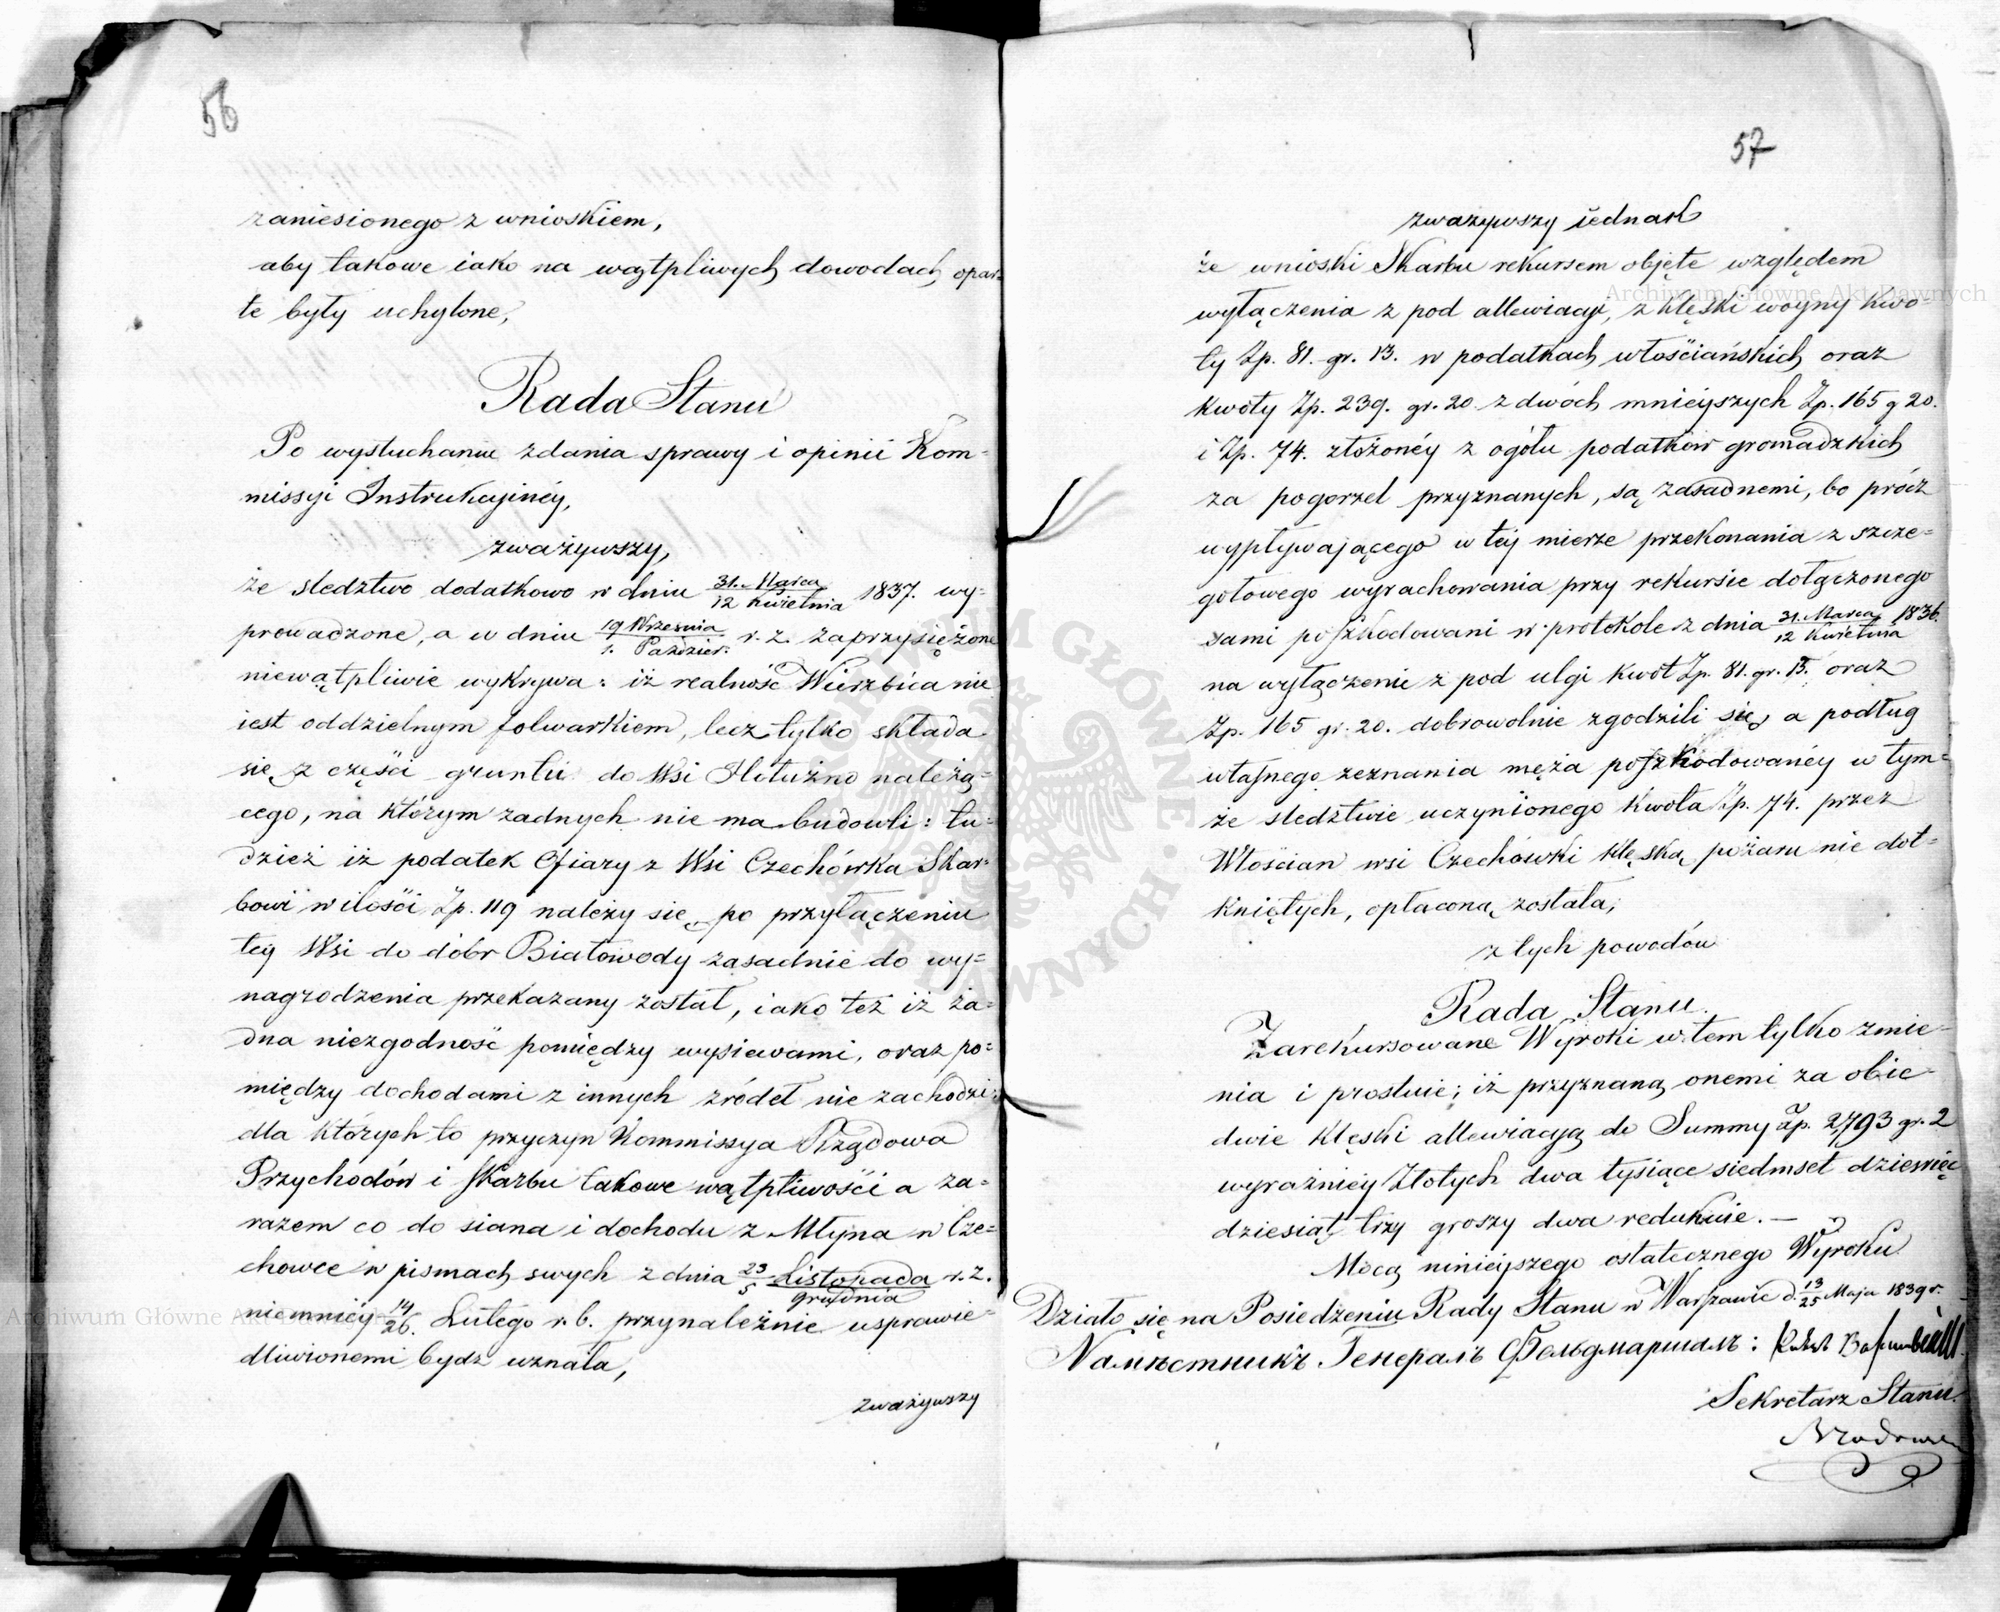 56
zaniesionego z wnioskiem,
aby takowe iako na wątpliwych dowodach opar-
te były uchylone,
Rada Stanu
Po wysłuchaniu zdania sprawy i opinii Kom-
missyi Instrukcyjnéy,
zważywszy,
że sledztwo dodatkowo w dniu 31. Marca / 12 Kwietnia 1837. wy-
prowadzone, a w dniu 19 Września / 1. Paździer. r. z. zaprzysiężone
niewątpliwie wykrywa: iż realność Wierzbica nie
iest oddzielnym folwarkiem, lecz tylko składa
się z części gruntu do Wsi Hołużno należą-
cego, na którym żadnych nie ma budowli: tu-
dzież iż podatek Ofiary z Wsi Czechówka Skar-
bowi w ilości Zp. 119 należy się, po przyłączeniu
tey Wsi do dóbr Białowody zasadnie do wy-
nagrodzenia przekazany został, iako też iż ża-
dna niezgodność pomiędzy wysiewami, oraz po-
między dochodami z innych źródeł nie zachodzi;
dla których to przyczyn Kommissya Rządowa
Przychodów i Skarbu takowe wątpliwości a za-
razem co do siana i dochodu z Młyna w Cze-
chowce w pismach swych z dnia 23 Listopada / 5 Grudnia r. z.
niemniéy 14/26. Lutego r. b. przynależnie usprawie-
dliwionemi bydz uznała,
zważywszy
57
zważywszy iednak
że wnioski Skarbu rekursem objęte względem
wyłączenia z pod allewiacyi, z klęski woyny kwo-
ty Zp. 81. gr. 13. w podatkach włościańskich oraz
kwoty Zp. 239. gr. 20. z dwóch mnieyszych Zp. 165 g 20.
i Zp. 74. złożonéy z ogółu podatków gromadzkich
za pogorzel przyznanych, są zasadnemi, bo prócz
wypływającego w téy mierze przekonania z szcze-
gołowego wyrachowania przy rekursie dołączonego
sami poszkodowani w protokole z dnia 31. Marca / 12 Kwietnia 1836.
na wyłączenie z pod ulgi kwot Zp. 81. gr. 13. oraz
Zp. 165 gr. 20. dobrowolnie zgodzili się, a podług
własnego zeznania męża poszkodowanéy w tym-
że sledztwie uczynionego kwota Zp. 74. przez
Włościan wsi Czechówki klęską pożaru nie dot-
kniętych, opłaconą została;
z tych powodów
Rada Stanu.
Zarekursowane Wyroki w tem tylko zmie-
nia i prostuie; iż przyznaną onemi za obie-
dwie klęski allewiacyą do Summy Zp. 2,793 gr. 2
wyraźniey Złotych dwa tysiące siedmset dziewięć
dziesiąt trzy groszy dwa redukuie. —
Mocą ninieyszego ostatecznego Wyroku
Działo się na Posiedzeniu Rady Stanu w Warszawie d. 13/25 Maja 1839 r.
Намѣстникъ Генералъ Фельдмаршалъ:
Sekretarz Stanu
Archiwum Główne Akt Dawnych
Archiwum Główne Akt Dawnych